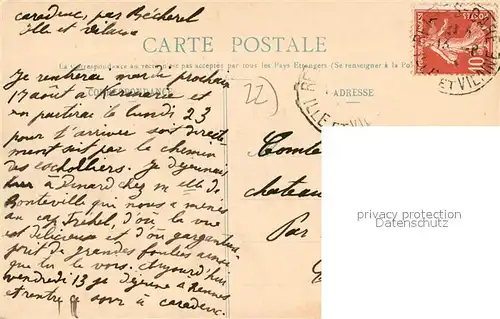 caradeuc, par Bécherel
Ille et Vilaine
CARTE POSTALE
La Correspondance n'est pas acceptée par tous les Pays Étrangers (Se renseigner à la Po
CORRESPONDANCE
ADRESSE
22)
POSTES
10
ILLE-ET-VI
ET-VILAINE
Je rentrerai mardi prochain
17 août à et en
partirai le lundi 23
pour t'arriver soit directe
ment soit par le chemin
des Je déjeunais
hier à Dinard chez m elle de
Bonteville qui nous a menés
au cap Fréhel, d'où la vue
est délicieuse et d'où gargantua
fit de grandes ainsi
que tu le vois. Aujourd'hui
vendredi 13 je déjeune à Rennes
et rentre ce soir à caradeuc.
Comte
chateau
Par
privacy protection
watermark